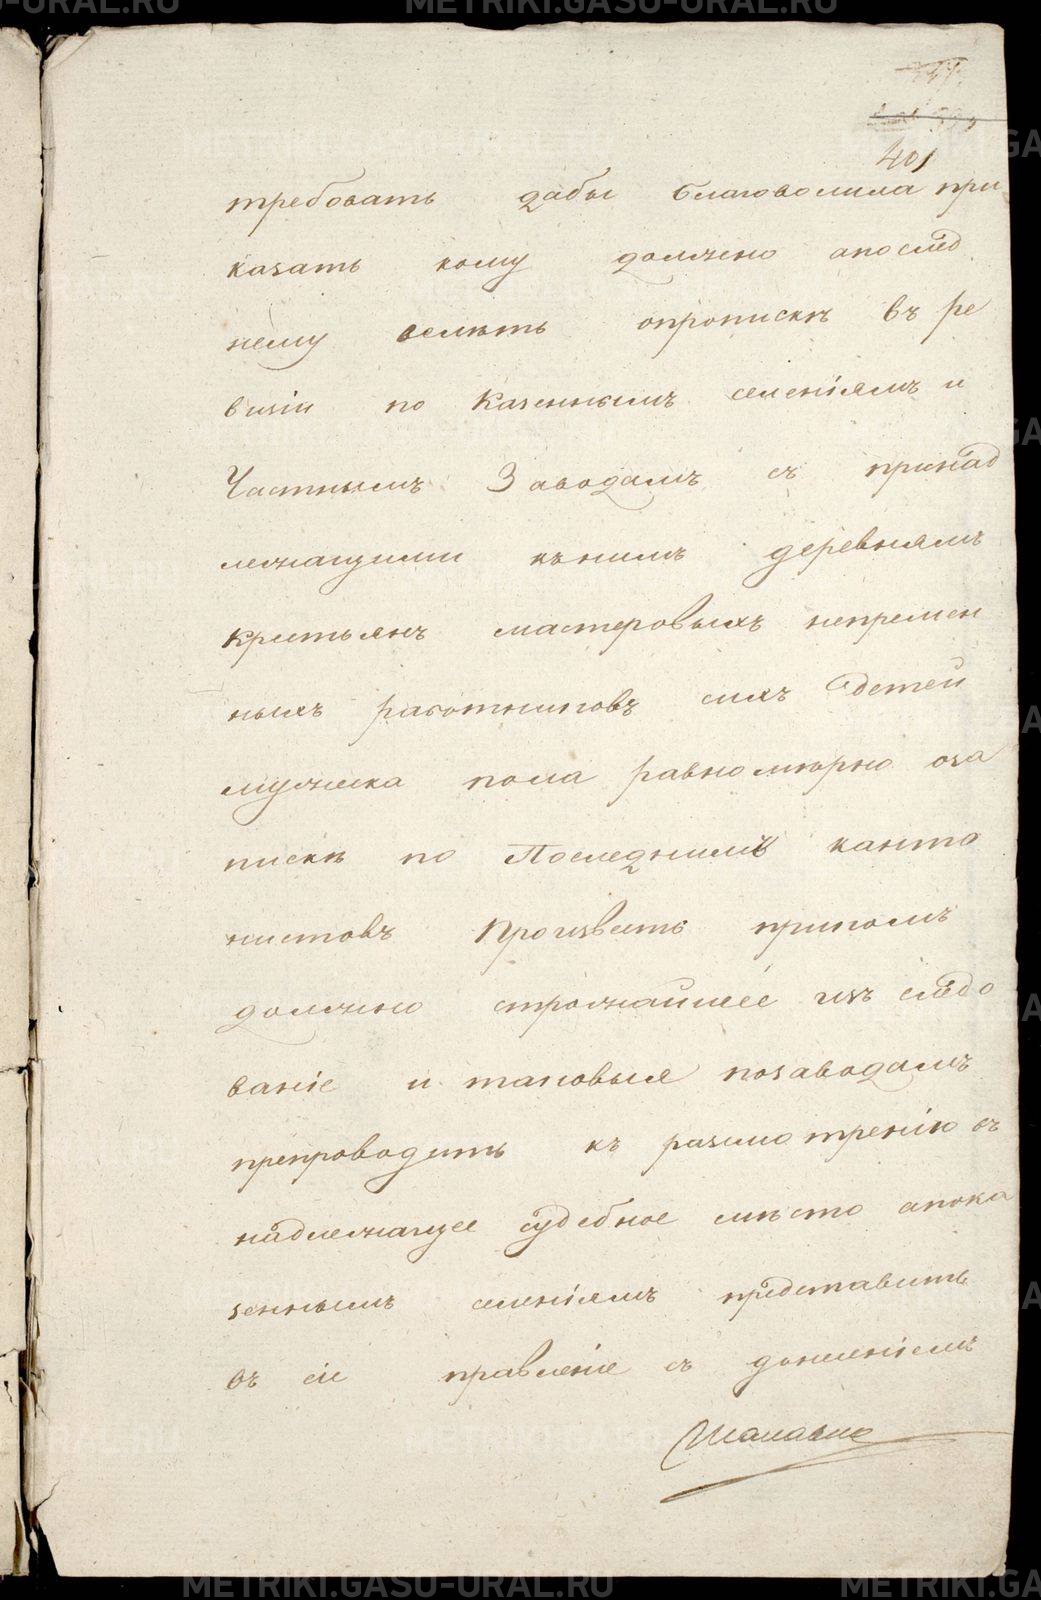 401
требовать дабы благоволила при
казать кому должно апослед
нему велѣть опропискѣ въ ре
визіи по Казеннымъ селеніямъ и
Частнымъ Заводамъ съ принад
лежащими кънимъ деревнямъ
крестьянъ мастеровыхъ непремен
ныхъ работниковъ ихъ детей
мужеска пола равномѣрно оза
пискѣ по Последнимъ канто
нистовъ Произвесть припомъ
должно строжайшее изъ следо
ваніе и таковыя позаводамъ
препроводить къ разсмотренію въ
надлежащее судебное мѣсто апока
зеннымъ селеніямъ представить
въ сіе правленіе съ донесеніемъ
METRIKI.GASU-URAL.RU